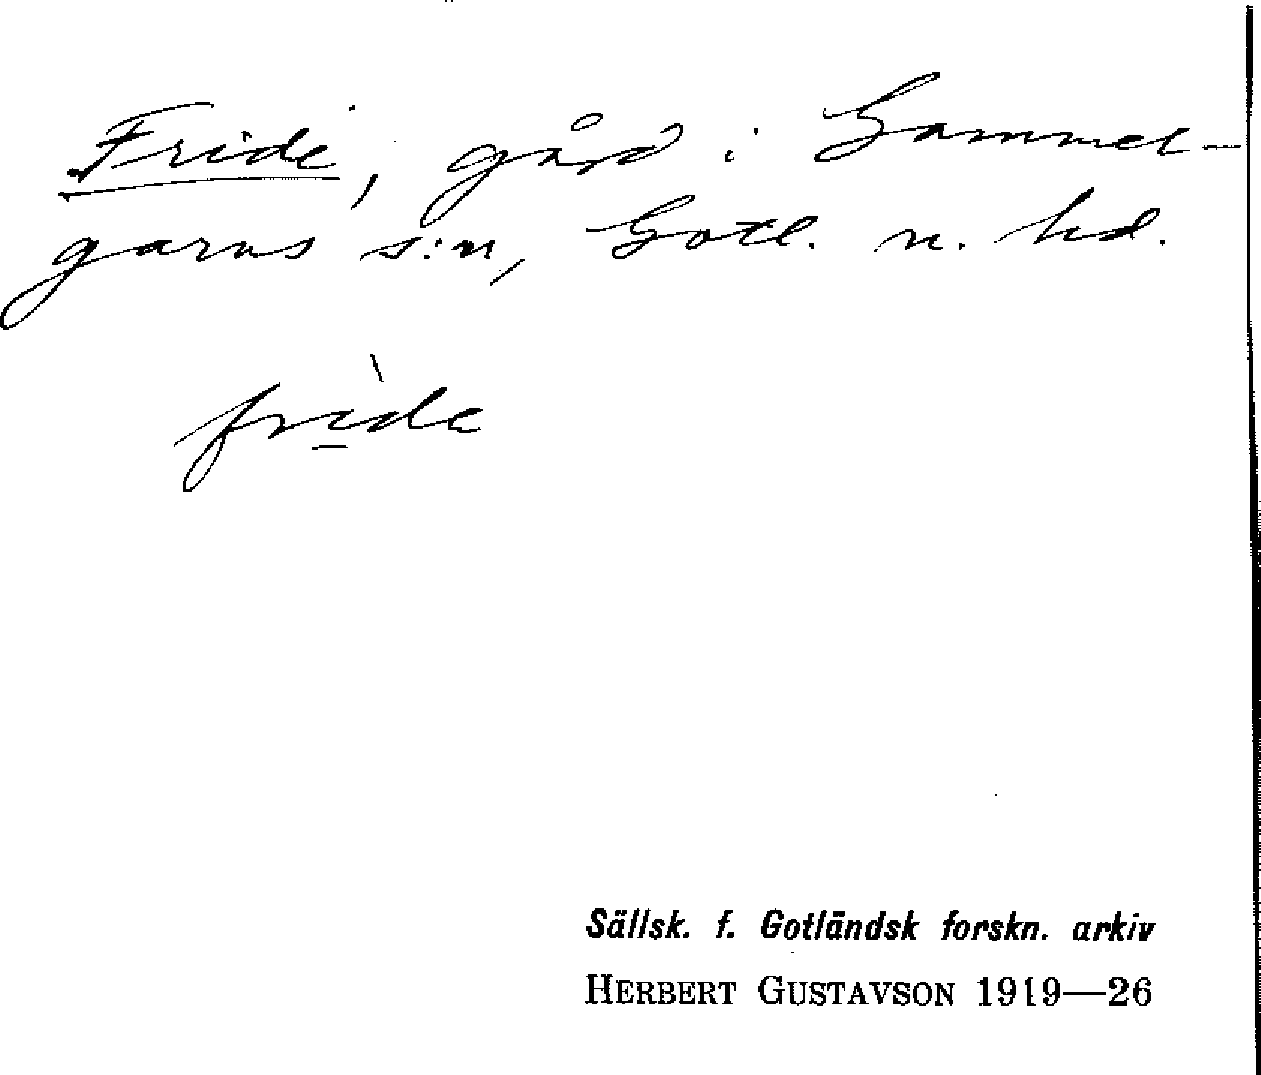 Fride, gård i Gammel-
garns s:n, Gotl. n. hd.
frìde
Sällsk. f. Gotländsk forskn. arkiv
HERBERT GUSTAVSON 1919—26